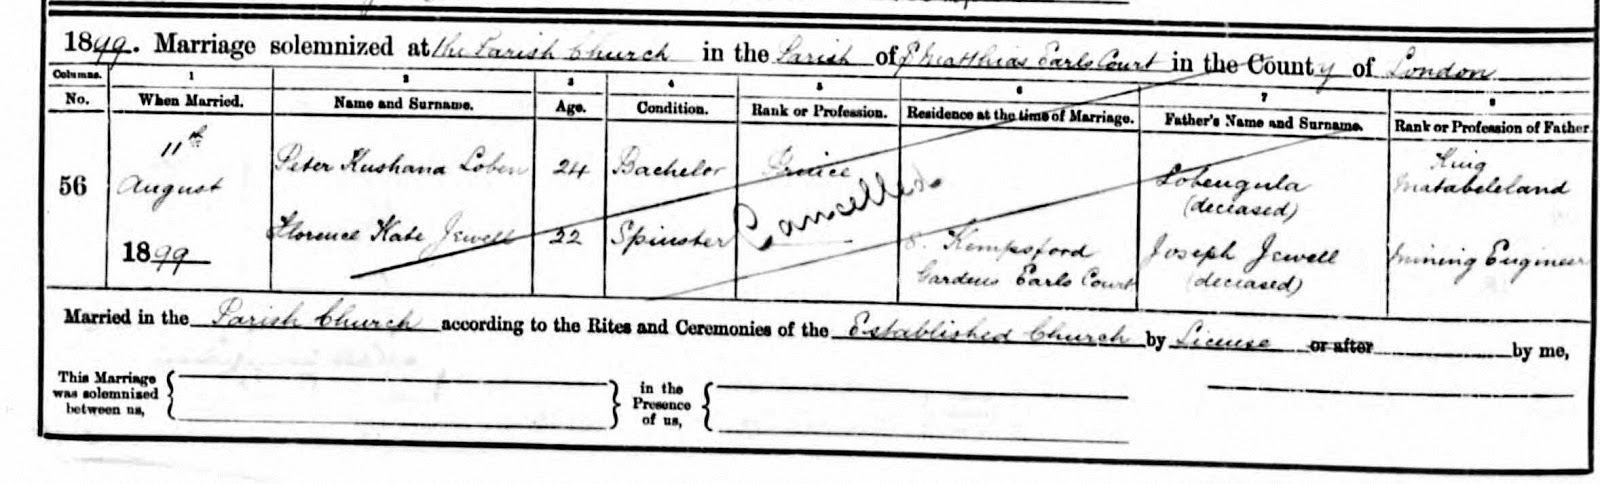 1899. Marriage solemnized at the Parish Church in the Parish of St Matthias Earls Court in the County of London
Columns. 1 2 3 4 5 6 7 8
No. When Married. Name and Surname. Age. Condition. Rank or Profession. Residence at the time of Marriage. Father's Name and Surname. Rank or Profession of Father.
56 11th August 1899
Peter Kushana Loben 24 Bachelor Prince Lobengula (deceased) King Matabeleland
Florence Kate Jewell 22 Spinster 8. Kempsford Gardens Earls Court Joseph Jewell (deceased) Mining Engineer
Cancelled.
Married in the Parish Church according to the Rites and Ceremonies of the Established Church by License or after by me,
This Marriage was solemnized between us,
in the Presence of us,